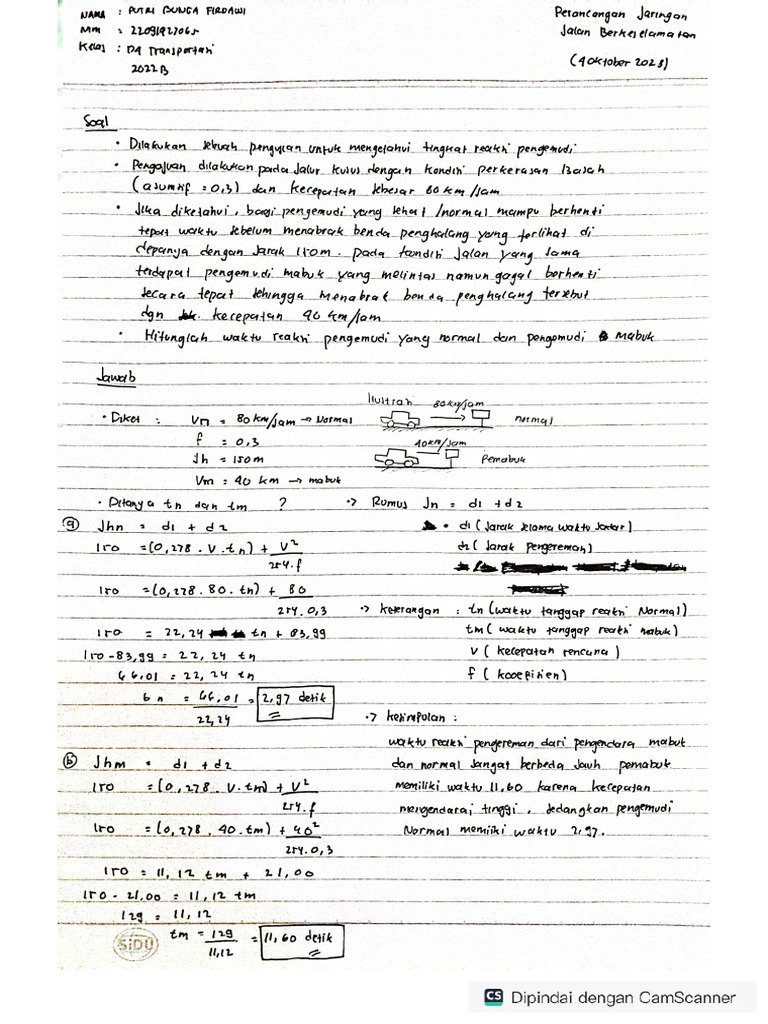 NAMA : PUTRI BUNGA FIRDAWI
Perancangan Jaringan
NIM : 22091927065
Jalan Berkeselamatan
Kelas : D4 Transportasi
2022B
(4 Oktober 2023)
Soal
• Dilakukan sebuah pengujian untuk mengetahui tingkat reaksi pengemudi
• Pengajuan dilakukan pada jalur kulus dengan kondisi perkerasan basah
(asumsif = 0,3) dan kecepatan sebesar 80 km/jam
• Jika diketahui, bagi pengemudi yang sehat /normal mampu berhenti
tepat waktu sebelum menabrak benda penghalang yang terlihat di
depanya dengan jarak 150m. pada kondisi jalan yang sama
terdapat pengemudi mabuk yang melintas namun gagal berhenti
secara tepat sehingga menabrak benda penghalang tersebut
dgn kecepatan 40 km/jam
• Hitunglah waktu reaksi pengemudi yang normal dan pengemudi mabuk
Jawab
• Diket : Vn = 80 km/jam → Normal
f = 0,3
Jh = 150 m
Vm = 40 km → mabuk
Ilustrasi
80km/jam
normal
40km/jam
Pemabuk
• Ditanya tn dan tm ?
-> Rumus Jn = d1 + d2
• d1 ( Jarak selama waktu sadar )
d2 ( Jarak pengereman )
-> keterangan : tn (waktu tanggap reaksi Normal)
tm ( waktu tanggap reaksi mabuk )
V ( kecepatan rencana )
f ( kooepisien )
(a) Jhn = d1 + d2
150 = (0,278 . V . tn) + V²
254.f
150 = (0,278 . 80 . tn) + 80
254. 0,3
150 = 22,24 tn + 83,99
150 - 83,99 = 22,24 tn
66,01 = 22,24 tn
tn = 66,01 = 2,97 detik
22,24
-> kesimpulan :
waktu reaksi pengereman dari pengendara mabuk
dan normal sangat berbeda jauh pemabuk
memiliki waktu 11,60 karena kecepatan
mengendarai tinggi , sedangkan pengemudi
Normal memiliki waktu 2,97.
(b) Jhm = d1 + d2
150 = (0,278 . V . tm) + V²
254.f
150 = (0,278 . 40 . tm) + 40²
254. 0,3
150 = 11,12 tm + 21,00
150 - 21.00 = 11,12 tm
129 = 11,12
tm = 129 = 11,60 detik
11,12
SiDU
CS Dipindai dengan CamScanner